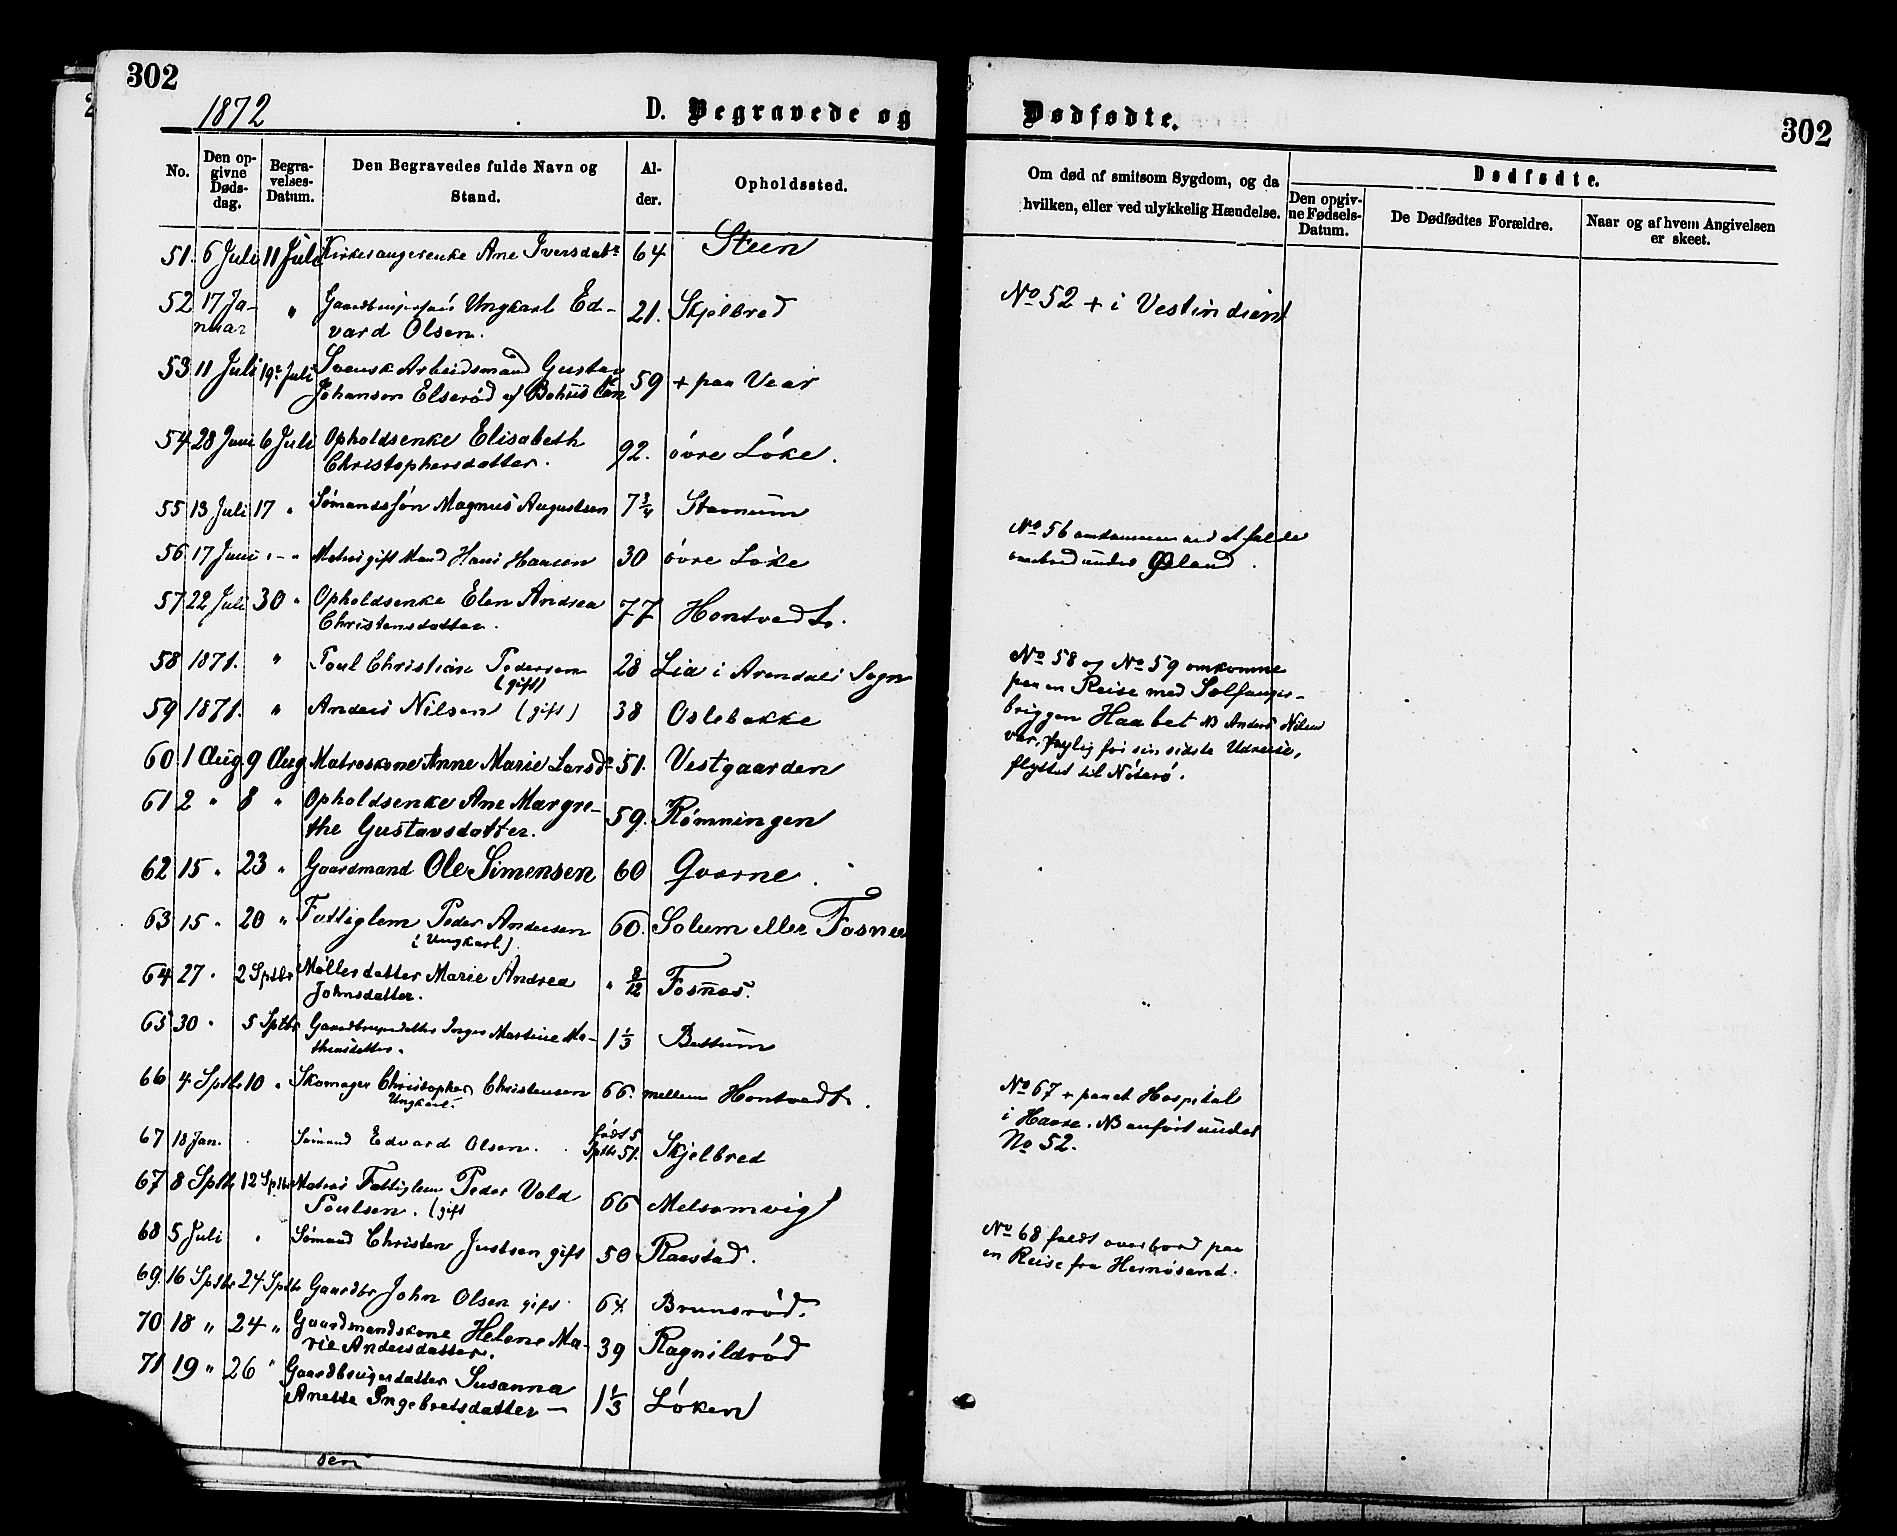 302
1872
D. Begravede og
No.
Den opgivne Dødsdag.
Begravelses-Datum.
Den Begravedes fulde Navn og Stand.
Alder.
Opholdssted.
51. 6 Juli 11 Juli Ane Iversdatr 64 Steen
52 17 Ja- " Ungkarl Ed- 21. Skjelbred
nuar vard Olsen.
53 11 Juli 19de Juli Svensk Arbeidsmand Gustav 59 + paa Vear
Johanson Elserød af Bohus Len
54 28 Juni 6 Juli Opholdsenke Elisabeth 92. övre Löke.
Christophersdatter.
55 13 Juli 17 " Sömandssön Magnus Augustsen 7 3/4 Stavnum
56 17 Juni " - " Matros gift Mand Hans Hansen 30 övre Löke
57 22 Juli 30 " Opholdsenke Elen Andrea 77 Hontvedt.
Christensdatter.
58 1871. " Poul Christian Pedersen 28 Lia i Arendals Sogn
(gift)
59 1871. " Anders Nilsen (gift) 38 Oslebakke
60 1 Aug 9 Aug Matroskone Anne Marie Larsdr 51. Vestgaarden
61 2 " 8 " Opholdsenke Ane Margre- 59. Römningen
the Gustavsdatter.
62 15 " 23 " Gaardmand Ole Simensen 60 Gvarne.
63 15 " 20 " Fattiglem Peder Andersen 60. Solum eller Fosnes
(Ungkarl)
64 27 " 2 Sptbr Möllerdatter Marie Andrea " 8/12 Fosnes.
Johnsdatter.
65 30 " 5 Sptbr Gaardbrugerdatter Inger Martine Ma- 1 1/3 Bettum
thiasdatter.
66 4 Sptbr 10 " Skomager Christopher Christensen 66. mellem Hontvedt.
Ungkarl.
67 18 Jan. Sömand Edvard Olsen. født 5 Sptbr 51. Skjelbred
67 8 Sptbr 12 Sptbr Matros Fattiglem Peder Vold 66 Melsomvig
Poulsen. (gift
68 5 Juli " Sömand Christen Justsen gift 50 Raestad.
69. 16 Sptbr 24 Sptbr Gaardbr John Olsen gift. 64 Brunsröd.
70 18 " 24 " Gaardmandskone Helene Ma- 39 Ragnildröd
rie Andersdatter.
71 19 " 26 " Gaardbrugerdatter Susanna 1 1/3 Löken
Anette Ingebretsdatter —
Dødfødte.
302
Om død af smitsom Sygdom, og da hvilken, eller ved ulykkelig Hændelse.
Dødfødte.
Den opgivne Fødsels-Datum.
De Dødfødtes Forældre.
Naar og af hvem Angivelsen er skeet.
No 52 + i Vestindien
No 56 omkommen ved at falde
overbord under Øland.
No 58 og No 59 omkomne
paa en Reise med Sælfanger-
briggen Haabet NB Anders Nilsen
var, nylig før sin sidste Udreise,
flyttet til Nöterö.
No 67 + paa et Hospital
i Havre. NB anført under
No 52.
No 68 faldt overbord paa
en Reise fra Hernösand.